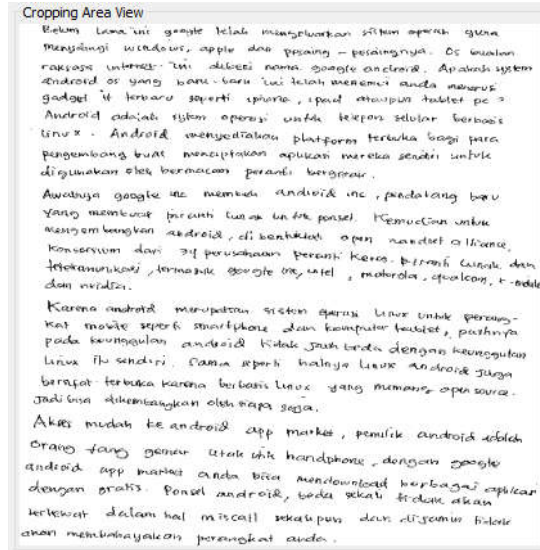 Cropping Area View
Belum lama ini google telah mengeluarkan sistem operasi guna
menyaingi windows, apple dan pesaing - pesaingnya. Os buatan
raksasa internet ini diberi nama google android. Apakah system
android os yang baru-baru ini telah menemui anda
gadget it terbaru seperti iphone, ipad ataupun tablet pc ?
Android adalah sistem operasi untuk telepon selular berbasis
linux. Android menyediakan platform terbuka bagi para
pengembang buat menciptakan aplikasi mereka sendiri untuk
digunakan oleh bermacam peranti bergerak.
Awalnya google inc membeli android inc, pendatang baru
yang membuat piranti lunak untuk ponsel. Kemudian untuk
mengembangkan android, dibentuklah open handset alliance,
konsorsium dari 34 perusahaan peranti keras, piranti lunak dan
telekomunikasi, termasuk google inc, intel, motorola, qualcom, t-mobile
dan nvidia.
Karena android merupakan sistem operasi linux untuk perang-
kat mobile seperti smartphone dan komputer tablet, pastinya
pada keunggulan android tidak jauh beda dengan keunggulan
Linux itu sendiri. Sama seperti halnya Linux android juga
bersifat terbuka karena berbasis Linux yang memang open source.
Jadi bisa dikembangkan oleh siapa saja.
Akses mudah ke android app market, pemilik android adalah
orang yang gemar utak utik handphone, dengan google
android app market anda bisa mendownload berbagai aplikasi
dengan gratis. Ponsel android, beda sekali tidak akan
terlewat dalam hal miscall sekalipun dan dijamin tidak
akan membahayakan perangkat anda.